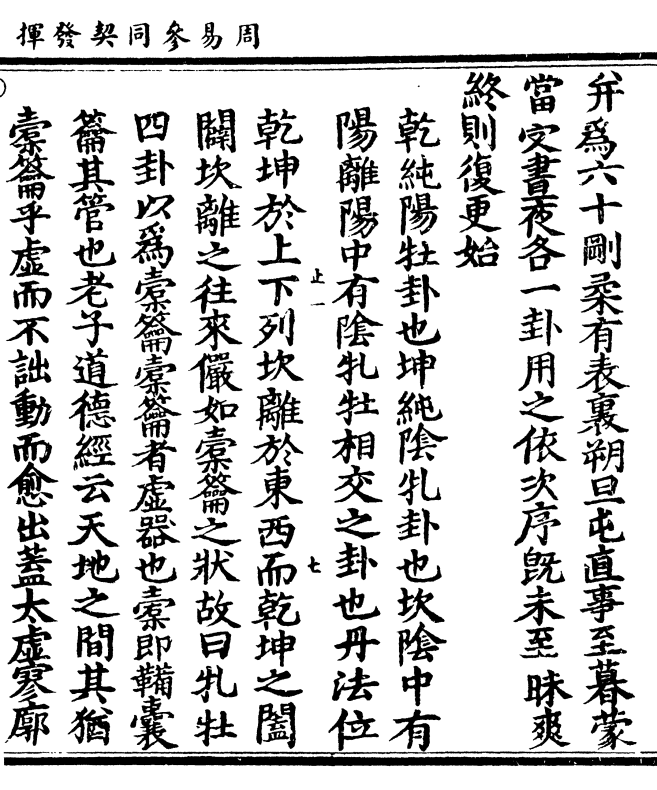 周易參同契發揮
并爲六十剛柔有表裏朔旦屯直事至暮蒙
當受晝夜各一卦用之依次序旣未至昧爽
終則復更始
乾純陽牡卦也坤純陰牝卦也坎陰中有
陽離陽中有陰牝牡相交之卦也丹法位
上一
七
乾坤於上下列坎離於東西而乾坤之闔
闢坎離之往來儼如槖籥之狀故曰牝牡
四卦以爲槖籥槖籥者虛器也槖即鞴囊
籥其管也老子道德經云天地之間其猶
槖籥乎虛而不詘動而愈出蓋太虛寥廓